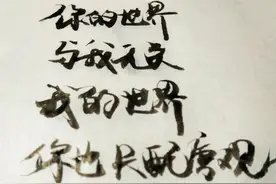 你的世界
与我无文
我的世界
你也只配旁观